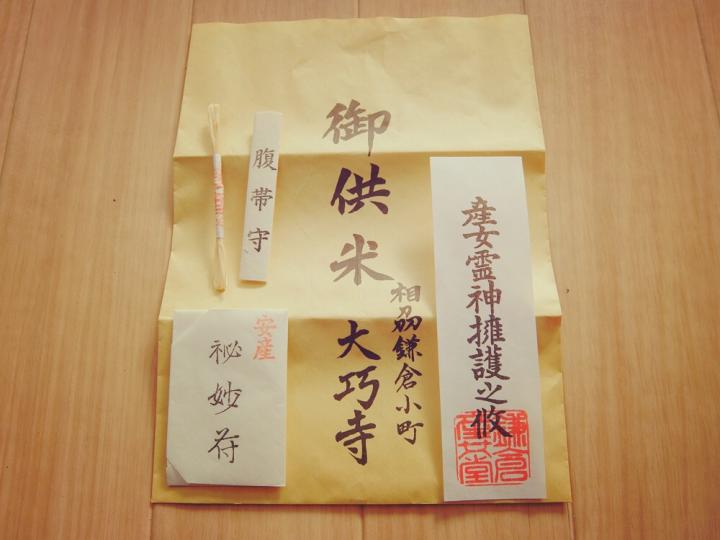 御供米
相刕鎌倉小町
大巧寺
産女霊神擁護之攸
鎌倉
産女堂
腹帯守
安産
祕妙符